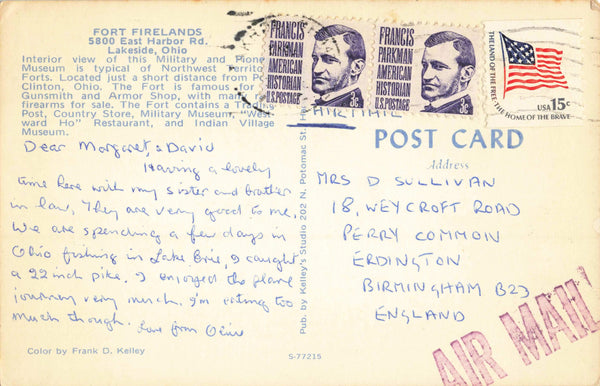 FORT FIRELANDS
5800 East Harbor Rd.
Lakeside, Ohio
Interior view of this Military and
Museum is typical of Northwest
Forts. Located just a short distance from
Clinton, Ohio. The Fort is famous for
Gunsmith and Armor Shop, with
firearms for sale. The Fort contains a
Post, Country Store, Military Museum,
ward Ho" Restaurant, and Indian Village
Museum.
Dear Margaret & David
Having a lovely
time here with my sister and brother
in law, They are very good to me.
We are spending a few days in
Ohio fishing in Lake Erie, I caught
a 22 inch pike. I enjoyed the plane
journey very much. I'm eating too
much though. Love from Olive
Color by Frank D. Kelley
S-77215
Pub. by Kelley's Studio 202 N. Potomac St.
FRANCIS
PARKMAN
AMERICAN
HISTORIAN
U.S. POSTAGE
3c
FRANCIS
PARKMAN
AMERICAN
HISTORIAN
U.S. POSTAGE
3c
THE LAND OF THE FREE
THE HOME OF THE BRAVE
USA 15c
AIRMAIL
POST CARD
Address
MRS D SULLIVAN
18, WEYCROFT ROAD
PERRY COMMON
ERDINGTON
BIRMINGHAM B23
ENGLAND
AIR MAIL